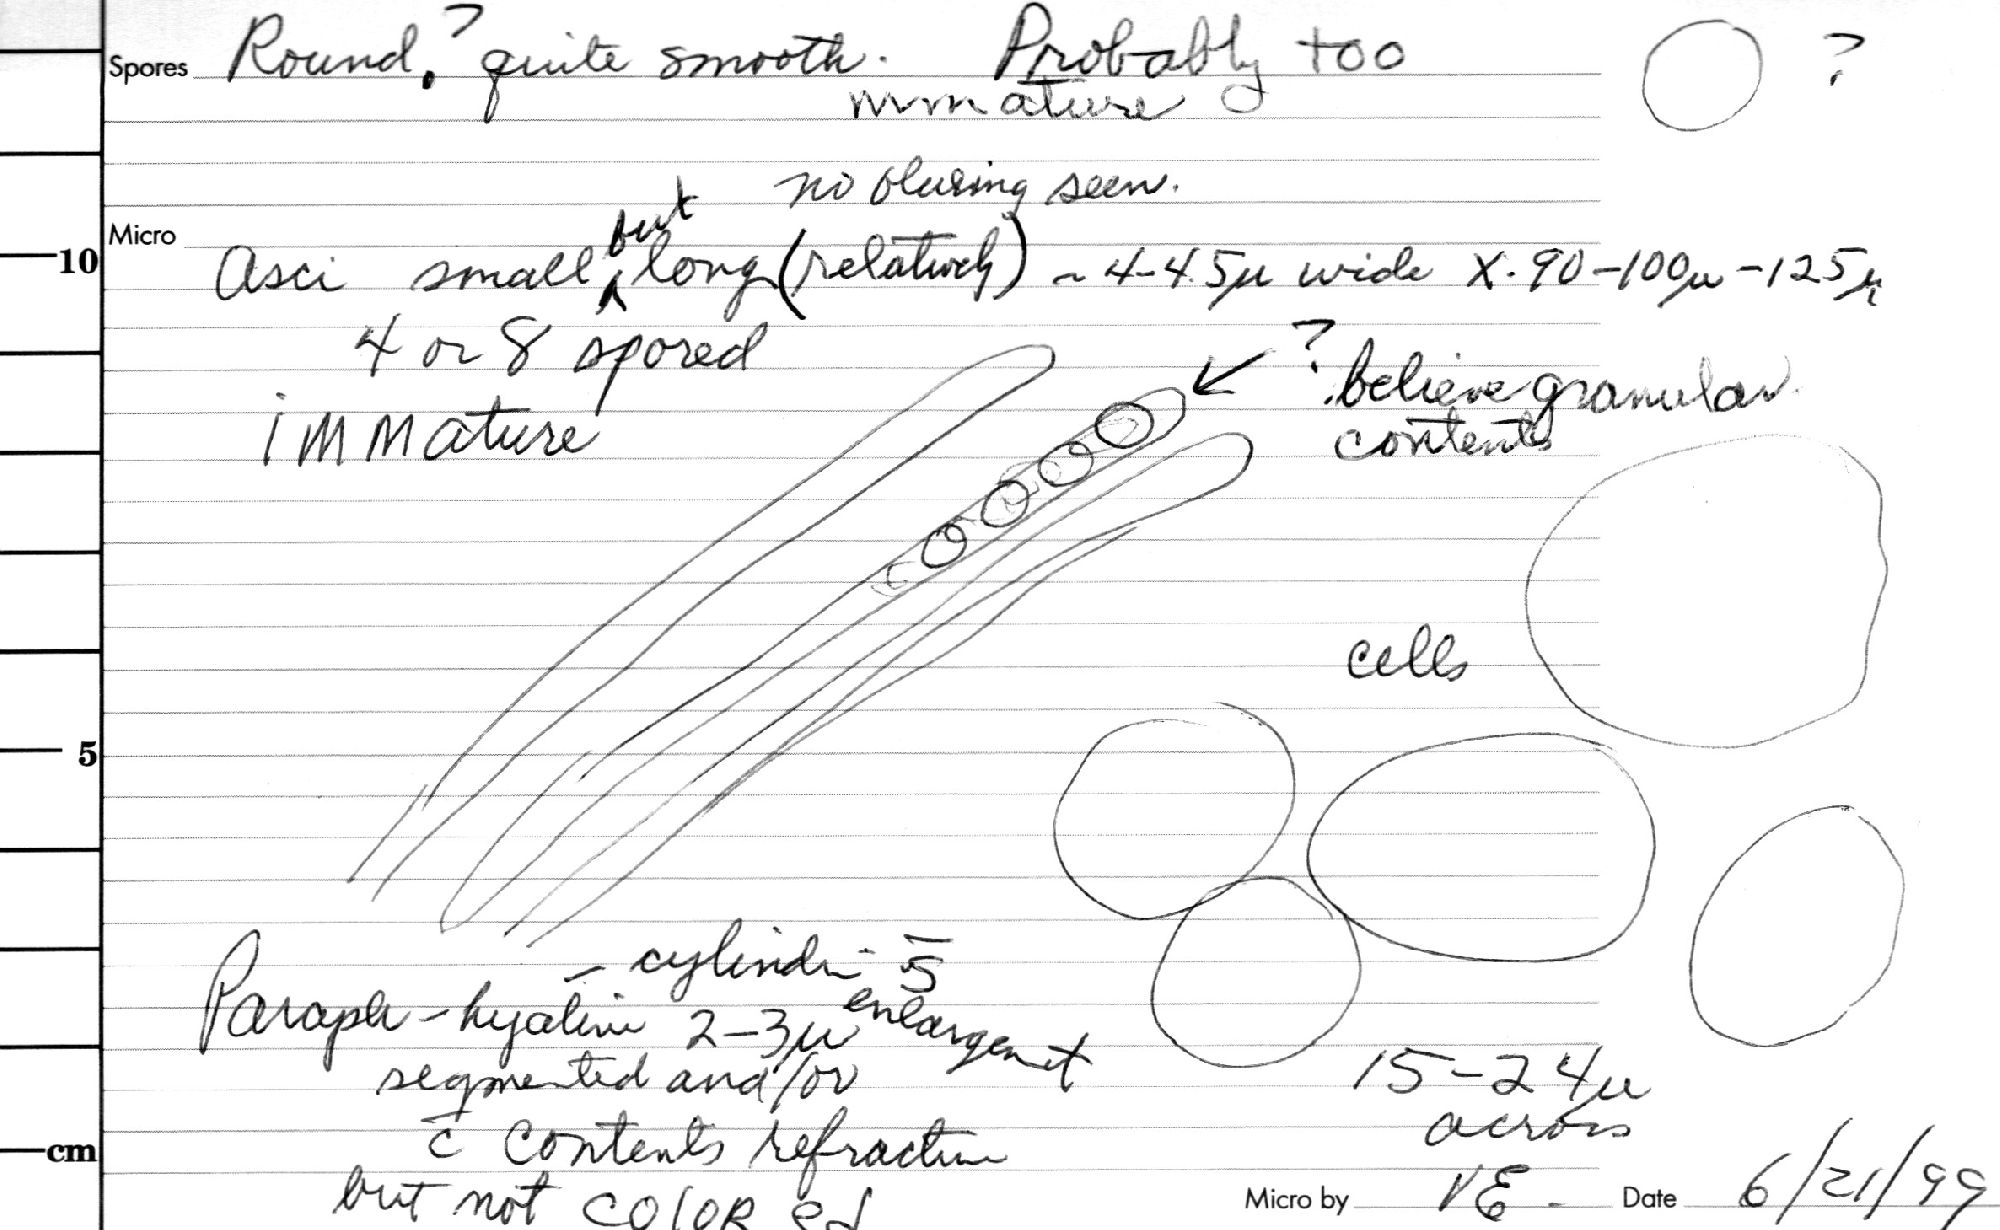 Spores Round.? quite smooth. Probably too
immature
?
no bluring seen.
Micro
10
but
Asci small ^ long (relatively) ~ 4-4.5µ wide X. 90-100µ-125µ
4 or 8 spored
immature
? believe granular
contents
cells
5
– cylindri - s̄
Paraph - hyalin 2-3µ enlargemt
segmented and/or
c̄ contents refractive
but not COLORed
15-24µ
across
cm
Micro by VE - Date 6/21/99